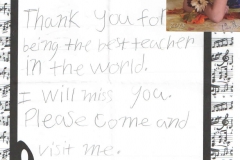 Thank You for
being the best teacher
in the world.
I will miss you.
Please come and
visit me.